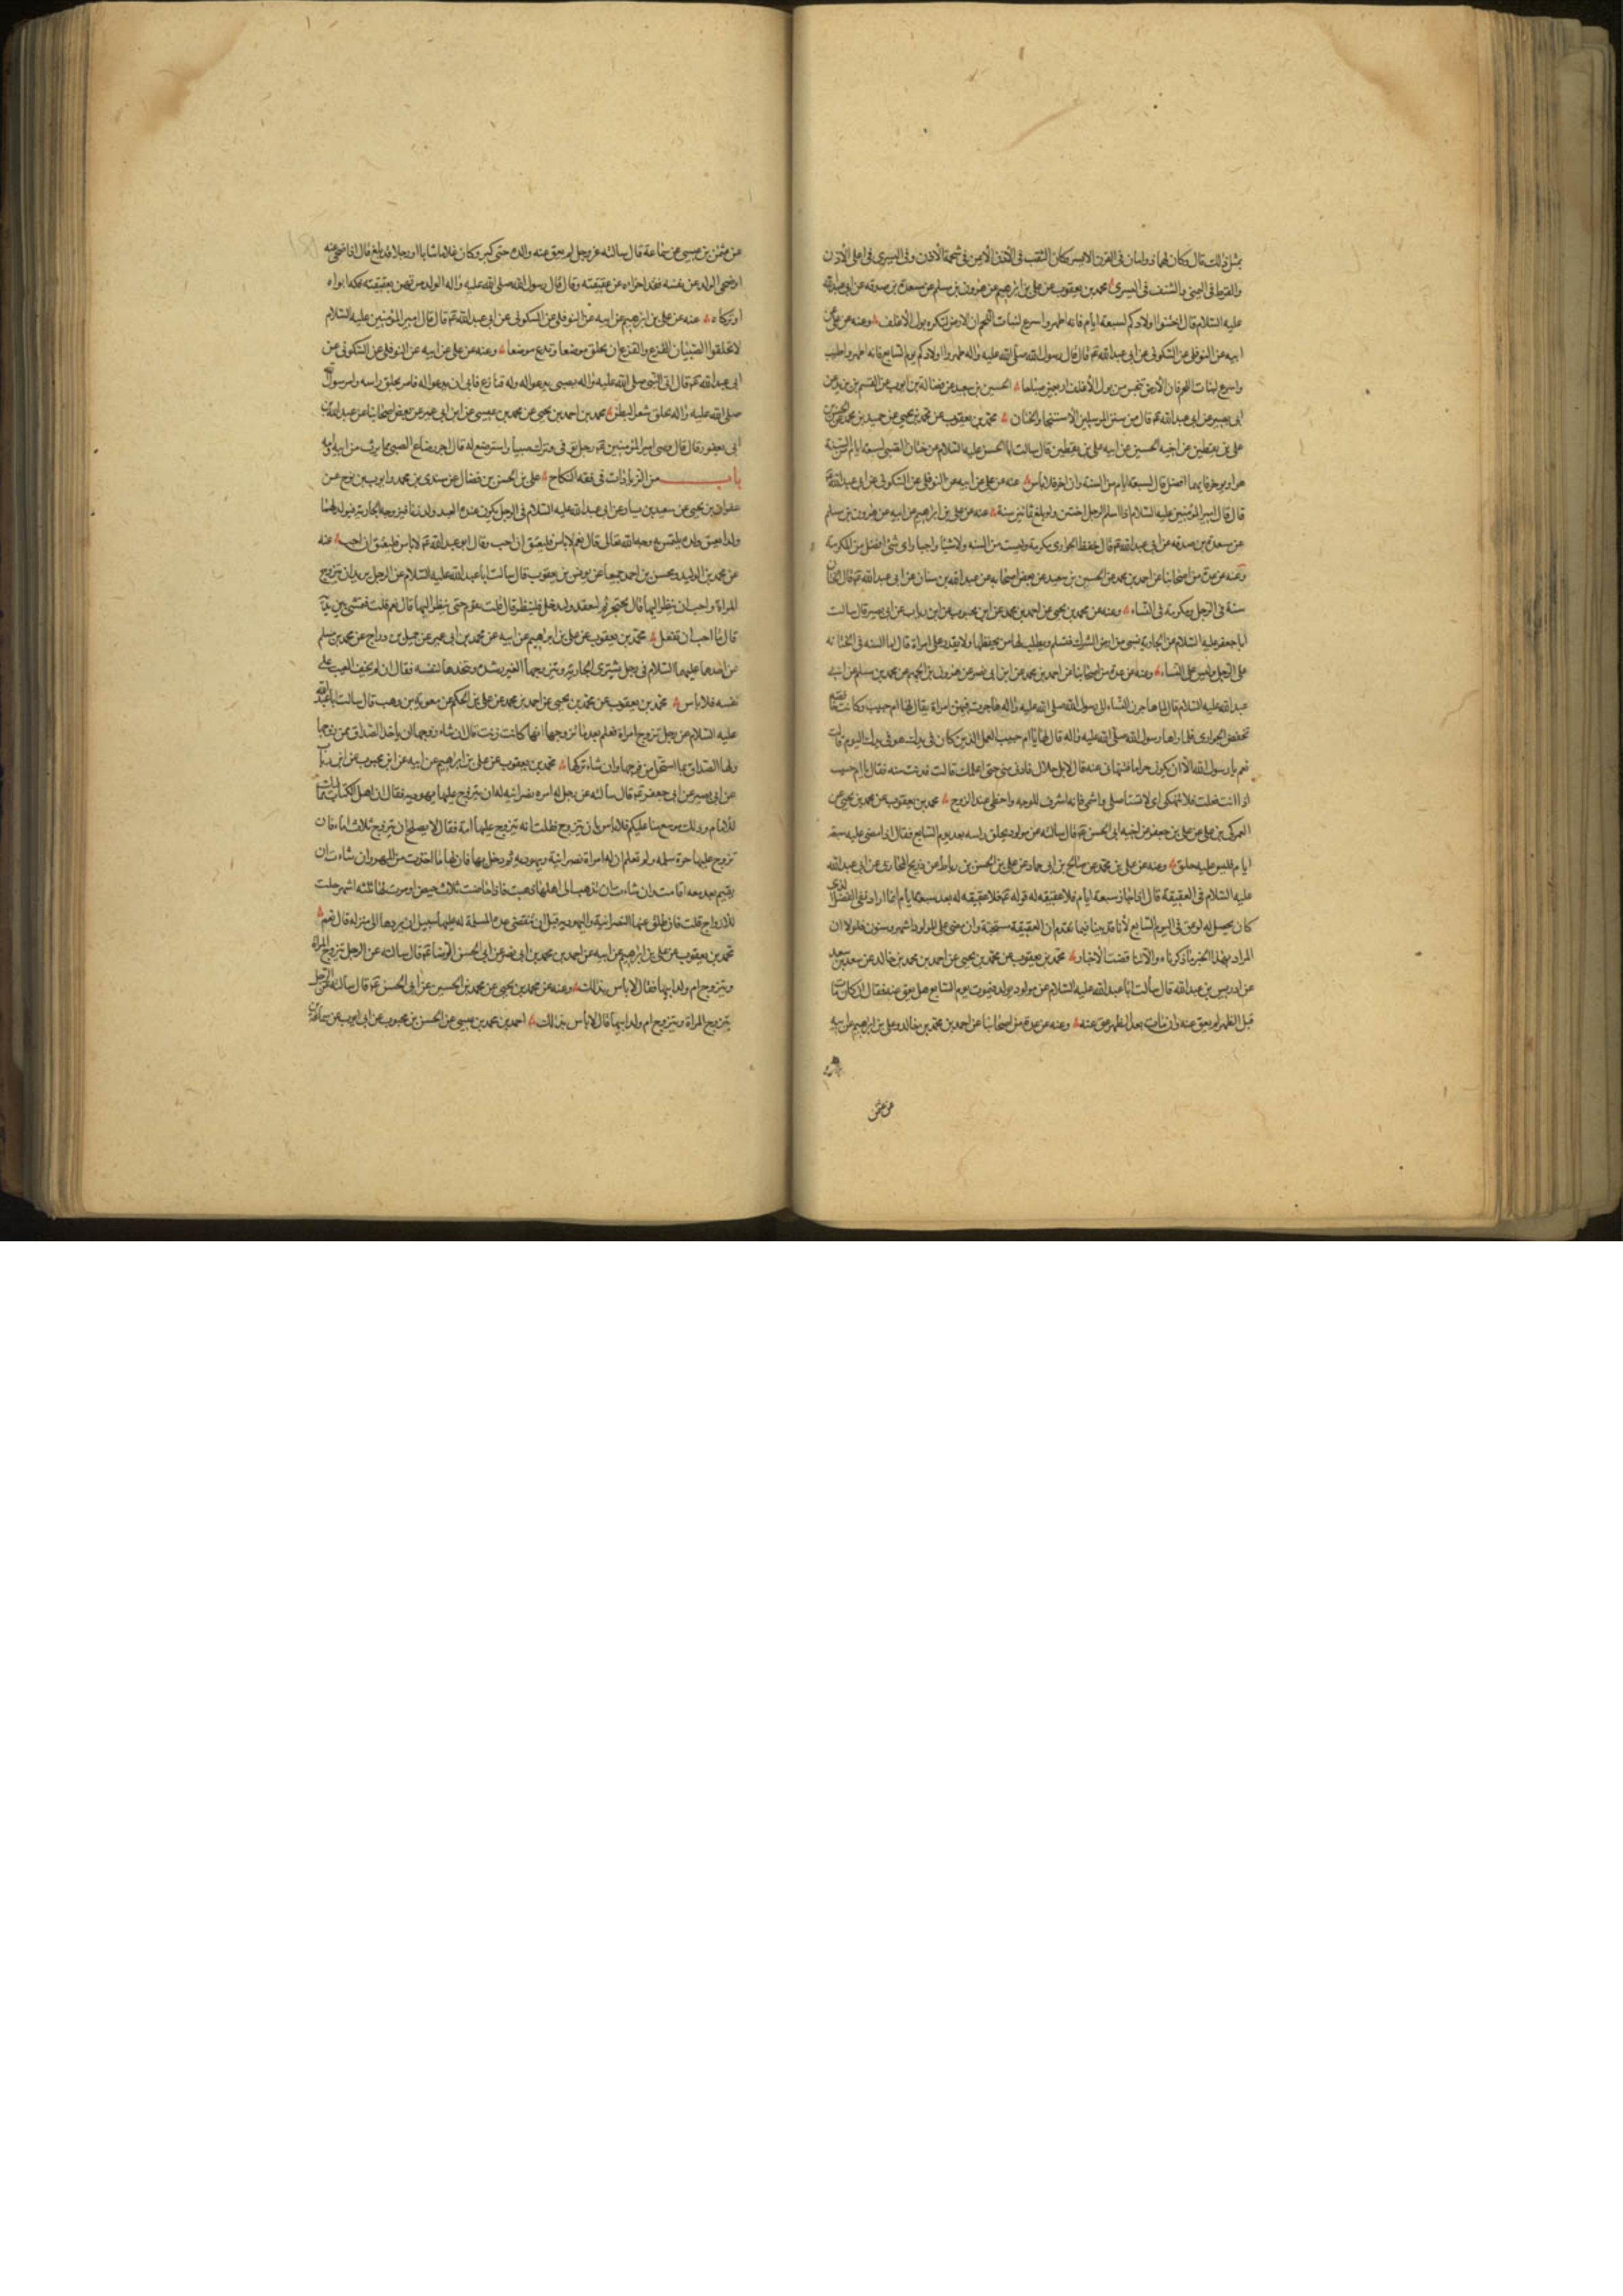 مثل ذلك قال وكان لهما ذوابتان في القرن الايسر وكان الثقب في الاذن الايمن في شحمة الاذن وفي اليسرى في اعلى الاذن
والقرط في اليمنى والشنف في اليسرى محمد بن يعقوب عن علي بن ابرهيم عن هرون بن مسلم عن مسعدة بن صدقه عن ابي عبدالله
عليه السّلام قال اختنوا اولادكم لسبعة ايام فانه اطهر واسرع لنبات اللحم ان الارض لتكره بول الاغلف وعنه عن علي عن
ابيه عن النوفلي عن السّكوني عن ابي عبد الله ع قال قال رسول الله صلّى الله عليه واله طهروا اولادكم يوم السّابع فانه اطهر واطيب
واسرع لنبات اللحم فان الارض تنجس من بول الاغلف اربعين صباحا الحسين بن سعيد عن فضالة بن ايوب عن القسم بن بريد عن
ابي بصير عن ابي عبد الله ع قال من سنن المرسلين الاستنجا والختان محمّد بن يعقوب عن محمّد بن يحيى عن
علي بن يقطين عن اخيه الحسين عن ابيه علي بن يقطين قال سالت ابا الحسن عليه السّلام عن ختان الصّبي لسبعة ايام من السّنة
هو او يوخر فايهما افضل قال لسبعة ايام من السنة وان اخر فلا باس عنه عن علي عن ابيه عن النوفلي عن السّكوني عن ابي عبد الله ع
قال قال امير المؤمنين عليه السّلام اذا اسلم الرجل اختتن ولو بلغ ثمانين سنة عنه عن علي بن ابرهيم عن ابيه عن هرون بن مسلم
عن مسعدة بن صدقه عن ابي عبد الله ع قال خفض الجواري مكرمة وليست من السنه ولا شيئا واجبا واي شئ افضل من المكرمة
وعنه عن عدة من اصحابنا عن احمد بن محمد عن الحسين بن سعيد عن بعض اصحابه عن عبد الله بن سنان عن ابي عبد الله ع قال الختان
سنة في الرجل ومكرمة في النّساء وعنه عن محمد بن يحيى عن احمد بن محمد عن ابن محبوب عن ابن رياب عن ابي بصير قال سالت
ابا جعفر عليه السّلام عن الجارية تسبى من ارض الشرك فتسلم ويطلب لها من يخفظها ولا يقدر على امراة قال اما السّنه في الختانة
على الرّجل وليس على النّساء وعنه عن عدة من اصحابنا عن احمد بن محمد عن ابن ابي نصر عن هرون بن الجهم عن محمد بن مسلم عن ابي
عبد الله عليه السّلام قال لما هاجرن النّساء الى رسول الله صلى الله عليه واله هاجرت فيهن امراة يقال لها ام حبيب وكانت
تخفض الجواري فلما راها رسول الله صلّى الله عليه واله قال لها يا ام حبيب العمل الذي كان في يدك هو في يدك اليوم قالت
نعم يا رسول الله الا ان يكون حراما فتنهاني عنه قال لا بل حلال فادني مني حتى اعلمك قالت فدنت منه فقال يا ام حبيب
اذا انت فعلت فلا تنهكي اي لا تستاصلي واشمي فانه اشرف للوجه واحظى عند الزوج محمد بن يعقوب عن محمد بن يحيى عن
العمركي بن علي عن علي بن جعفر عن اخيه ابي الحسن ع قال سالته عن مولود يحلق راسه بعد يوم السّابع فقال اذا مضى عليه سبعة
ايام فليس عليه حلق وعنه عن علي بن محمّد عن صالح بن ابي حماد عن علي بن الحسن بن رباط عن ذريح المحاربي عن ابي عبد الله
عليه السّلام في العقيقة قال اذا جاز سبعة ايام فلا عقيقه له قوله ع فلا عقيقه له بعد سبعة ايام انما اراد نفي الفضل الذي
كان يحصل له لو عق في اليوم السّابع لأنا قد بينا فيما تقدم ان العقيقة مستحبّة وان مضى على المولود اشهر وسنون فلولا ان
المراد بهذا الخبر ما ذكرناه والا لتناقضت الاخبار محمّد بن يعقوب عن محمّد بن يحيى عن احمد بن محمد بن خالد عن سعد بن سعد
عن ادريس بن عبد الله قال سألت ابا عبد الله عليه السّلام عن مولود يولد فيموت يوم السّابع هل يعق عنه فقال ان كان مات
قبل الظهر لم يعق عنه وان مات بعد الظهر عق عنه وعنه عن عدة من اصحابنا عن احمد بن محمّد بن خالد وعلي بن ابراهيم عن ابيه
عن عثمن
عن عثمن بن عيسى عن سماعة قال سالته عن رجل لم يعق عنه والده حتى كبر وكان غلاما شابا او رجلا قد بلغ قال اذا ضحى عنه
او ضحى الولد عن نفسه فقد اجزاه عن عقيقته وقال قال رسول الله صلى الله عليه واله الولد مرتهن بعقيقته فكه ابواه
او تركاه عنه عن علي بن ابرهيم عن ابيه عن النوفلي عن السكوني عن ابي عبد الله ع قال قال امير المؤمنين عليه السّلام
لا تحلقوا الصّبيان القزع والقزع ان يحلق موضعا ويدع موضعا وعنه عن علي عن ابيه عن النوفلي عن السّكوني عن
ابي عبد الله ع قال اتي النّبي صلى الله عليه واله بصبي يدعو له وله قنازع فابى ان يدعو له فامر بحلق راسه وامر رسول الله
صلى الله عليه واله بحلق شعر البطن محمد بن احمد بن يحيى عن محمد بن عيسى عن ابن ابي عمير عن بعض اصحابنا عن عبد الله بن
ابي يعفور قال قال قضى امير المؤمنين ع في رجل توفي وترك صبيا واسترضع له قال اجر رضاع الصبي مما يرث من ابيه وامه
باب من الزيادات في فقه النكاح علي بن الحسن بن فضال عن سندي بن محمد وايوب بن نوح عن
صفوان بن يحيى عن سعيد بن يسار عن ابي عبد الله عليه السّلام في الرجل يكون عنده العبد ولد زنا فيزوجه الجارية فيولد لهما
ولد ايعتق ولده يلتمس به وجه الله تعالى قال نعم لا باس فليعتق ان احب وقال ابو عبد الله ع لا باس فليعتق ان احب عنه
عن محمد بن الوليد ومحسن بن احمد جميعا عن يونس بن يعقوب قال سالت ابا عبد الله عليه السّلام عن الرجل يريد ان يتزوج
المراة واحب ان ينظر اليها قال تحتجز ثم لتقعد وليدخل فلينظر قال قلت تقوم حتى ينظر اليها قال نعم قلت فتمشي بين يديه
قال ما احب ان تفعل محمّد بن يعقوب عن علي بن ابراهيم عن ابيه عن محمد بن ابي عمير عن جميل بن دراج عن محمد بن مسلم
عن احدهما عليهما السّلام في رجل يشتري الجارية ويتزوجها لغير رشده ويتخذها لنفسه فقال ان لم يخف العيب على
نفسه فلا باس محمّد بن يعقوب عن محمّد بن يحيى عن احمد بن محمد عن علي بن الحكم عن معوية بن وهب قال سالت ابا عبد الله
عليه السّلام عن رجل تزوج امراة فعلم بعد ما تزوجها انها كانت زنت قال ان شاء زوجها ان ياخذ الصّداق ممن زوجها
ولها الصّداق بما استحل من فرجها وان شاء تركها محمّد بن يعقوب عن علي بن ابرهيم عن ابيه عن ابن محبوب عن ابن رياب
عن ابي بصير عن ابي جعفر ع قال سالته عن رجل له امراة نصرانيه له ان يتزوج عليها يهوديه فقال ان اهل الكتاب مماليك
للامام وذلك موسع منا عليكم فلا باس بان يتزوج فقلت انه تزوج عليها امة فقال لا يصلح ان يتزوج ثلاث اماء فان
تزوج عليها حرة مسلمه ولم تعلم ان له امراة نصرانية ويهوديه ثم دخل بها فان لها ما اخذت من المهر وان شاءت ان
تقيم بعد معه اقامت وان شاءت ان تذهب الى اهلها ذهبت فاذا حاضت ثلاث حيض او مرت لها ثلثه اشهر حلت
للازواج قلت فان طلق عنها النصرانية واليهوديه قبل ان تنقضي عدة المسلمة له عليها سبيل ان يردها الى منزله قال نعم
محمّد بن يعقوب عن علي بن ابراهيم عن ابيه عن احمد بن محمد بن ابي نصر عن ابي الحسن الرّضا ع قال سالته عن الرجل يتزوج المراة
ويتزوج ام ولد ابيها فقال لا باس بذلك وعنه عن محمد بن يحيى عن محمد بن الحسين عن ابي الحسن ع قال سالته عن الرجل
يتزوج المراة ويتزوج ام ولد ابيها قال لا باس بذلك احمد بن محمد بن عيسى عن الحسن بن محبوب عن ابي ايوب عن سماعة